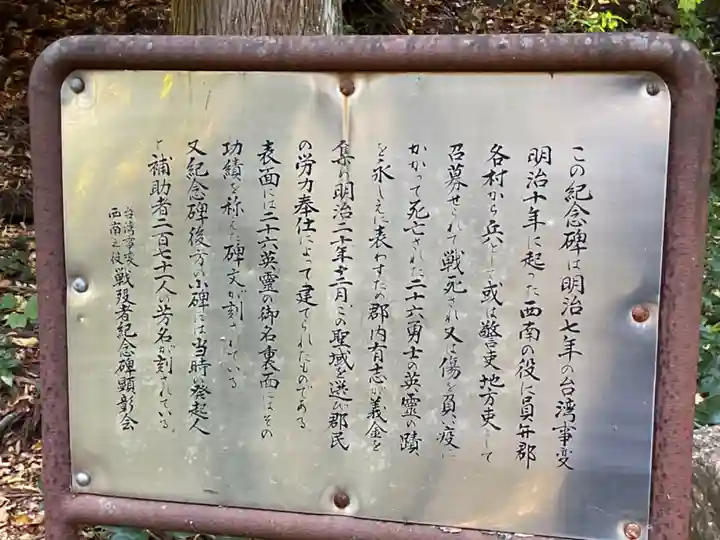 この紀念碑は明治七年の台湾事変
明治十年に起った西南の役に員弁郡
各村から兵として或は警吏地方吏として
召募せられて戦死され又は傷を負い疫に
かかって死亡された二十六勇士の英霊の蹟
を永しえに表わすため郡内有志が義金を
集め明治二十年十二月、この聖域を選び郡民
の労力奉仕によって建てられたものである
表面には二十六英霊の御名裏面にはその
功績を称えた碑文が刻されている
又紀念碑後方の小碑には当時の発起人
と補助者二百七十一人の芳名が刻されている。
台湾事変
西南之役
戦歿者紀念碑顕彰会